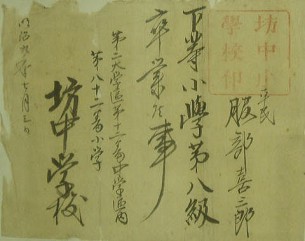 坊中小
學校印
平民
服部喜三郎
下等小學第八級
卒業候事
第二大學區第十二番中学區内
第八十二番小学
坊中学校
明治九年七月三日